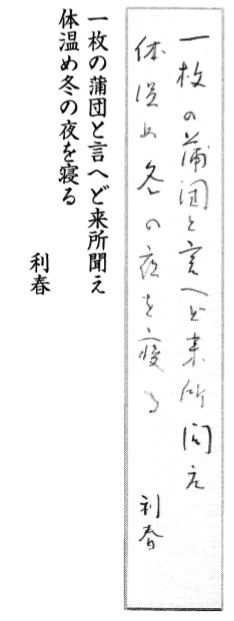 一枚の蒲団と言へど来所聞え
体温め冬の夜を寝る
利春
一枚の蒲団と言へど来所聞え
体温め冬の夜を寝る
利春